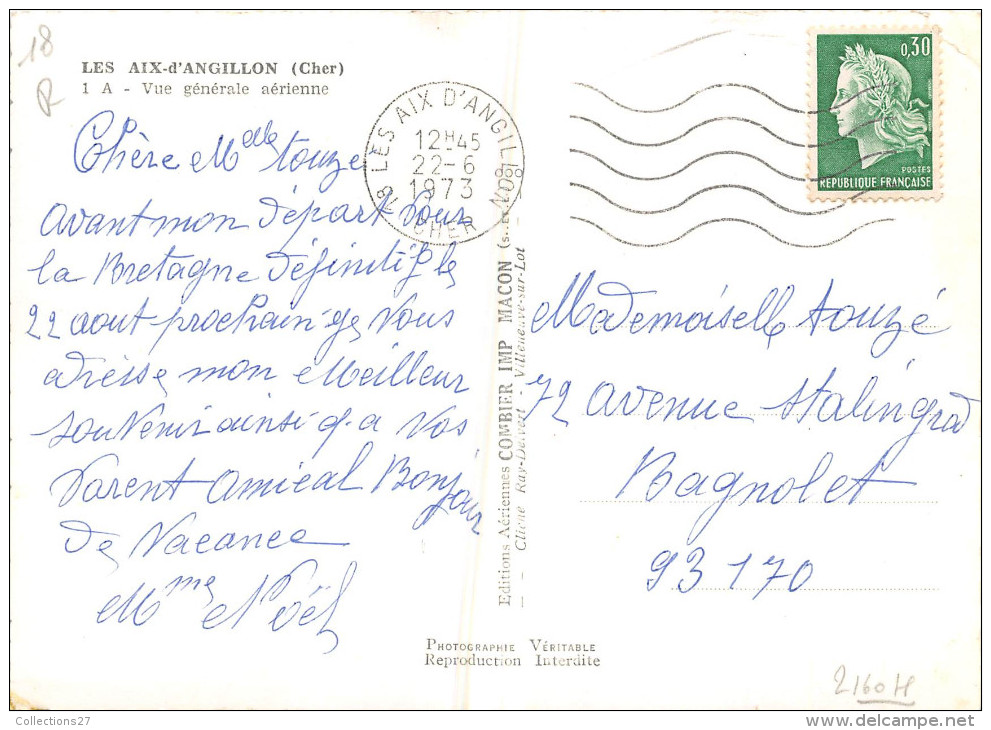 18
R
LES AIX-d'ANGILLON (Cher)
1 A - Vue générale aérienne
LES AIX D'ANGILLON
12H45
22-6
1973
18 CHER
0,30
POSTES
REPUBLIQUE FRANÇAISE
Chère Melle touzé
avant mon départ pour
la Bretagne définitif le
22 aout prochain je vous
adresse mon meilleur
souvenir ainsi q. a vos
parent amical Bonjour
de vacance
Mme Noël
Editions Aériennes COMBIER IMP MACON
Cliché Ray-Delvert - Villeneuve-sur-Lot
Mademoiselle touzé
72 avenue stalingrad
Bagnolet
93170
PHOTOGRAPHIE VÉRITABLE
Reproduction Interdite
2160H
Collections27
www.delcampe.net